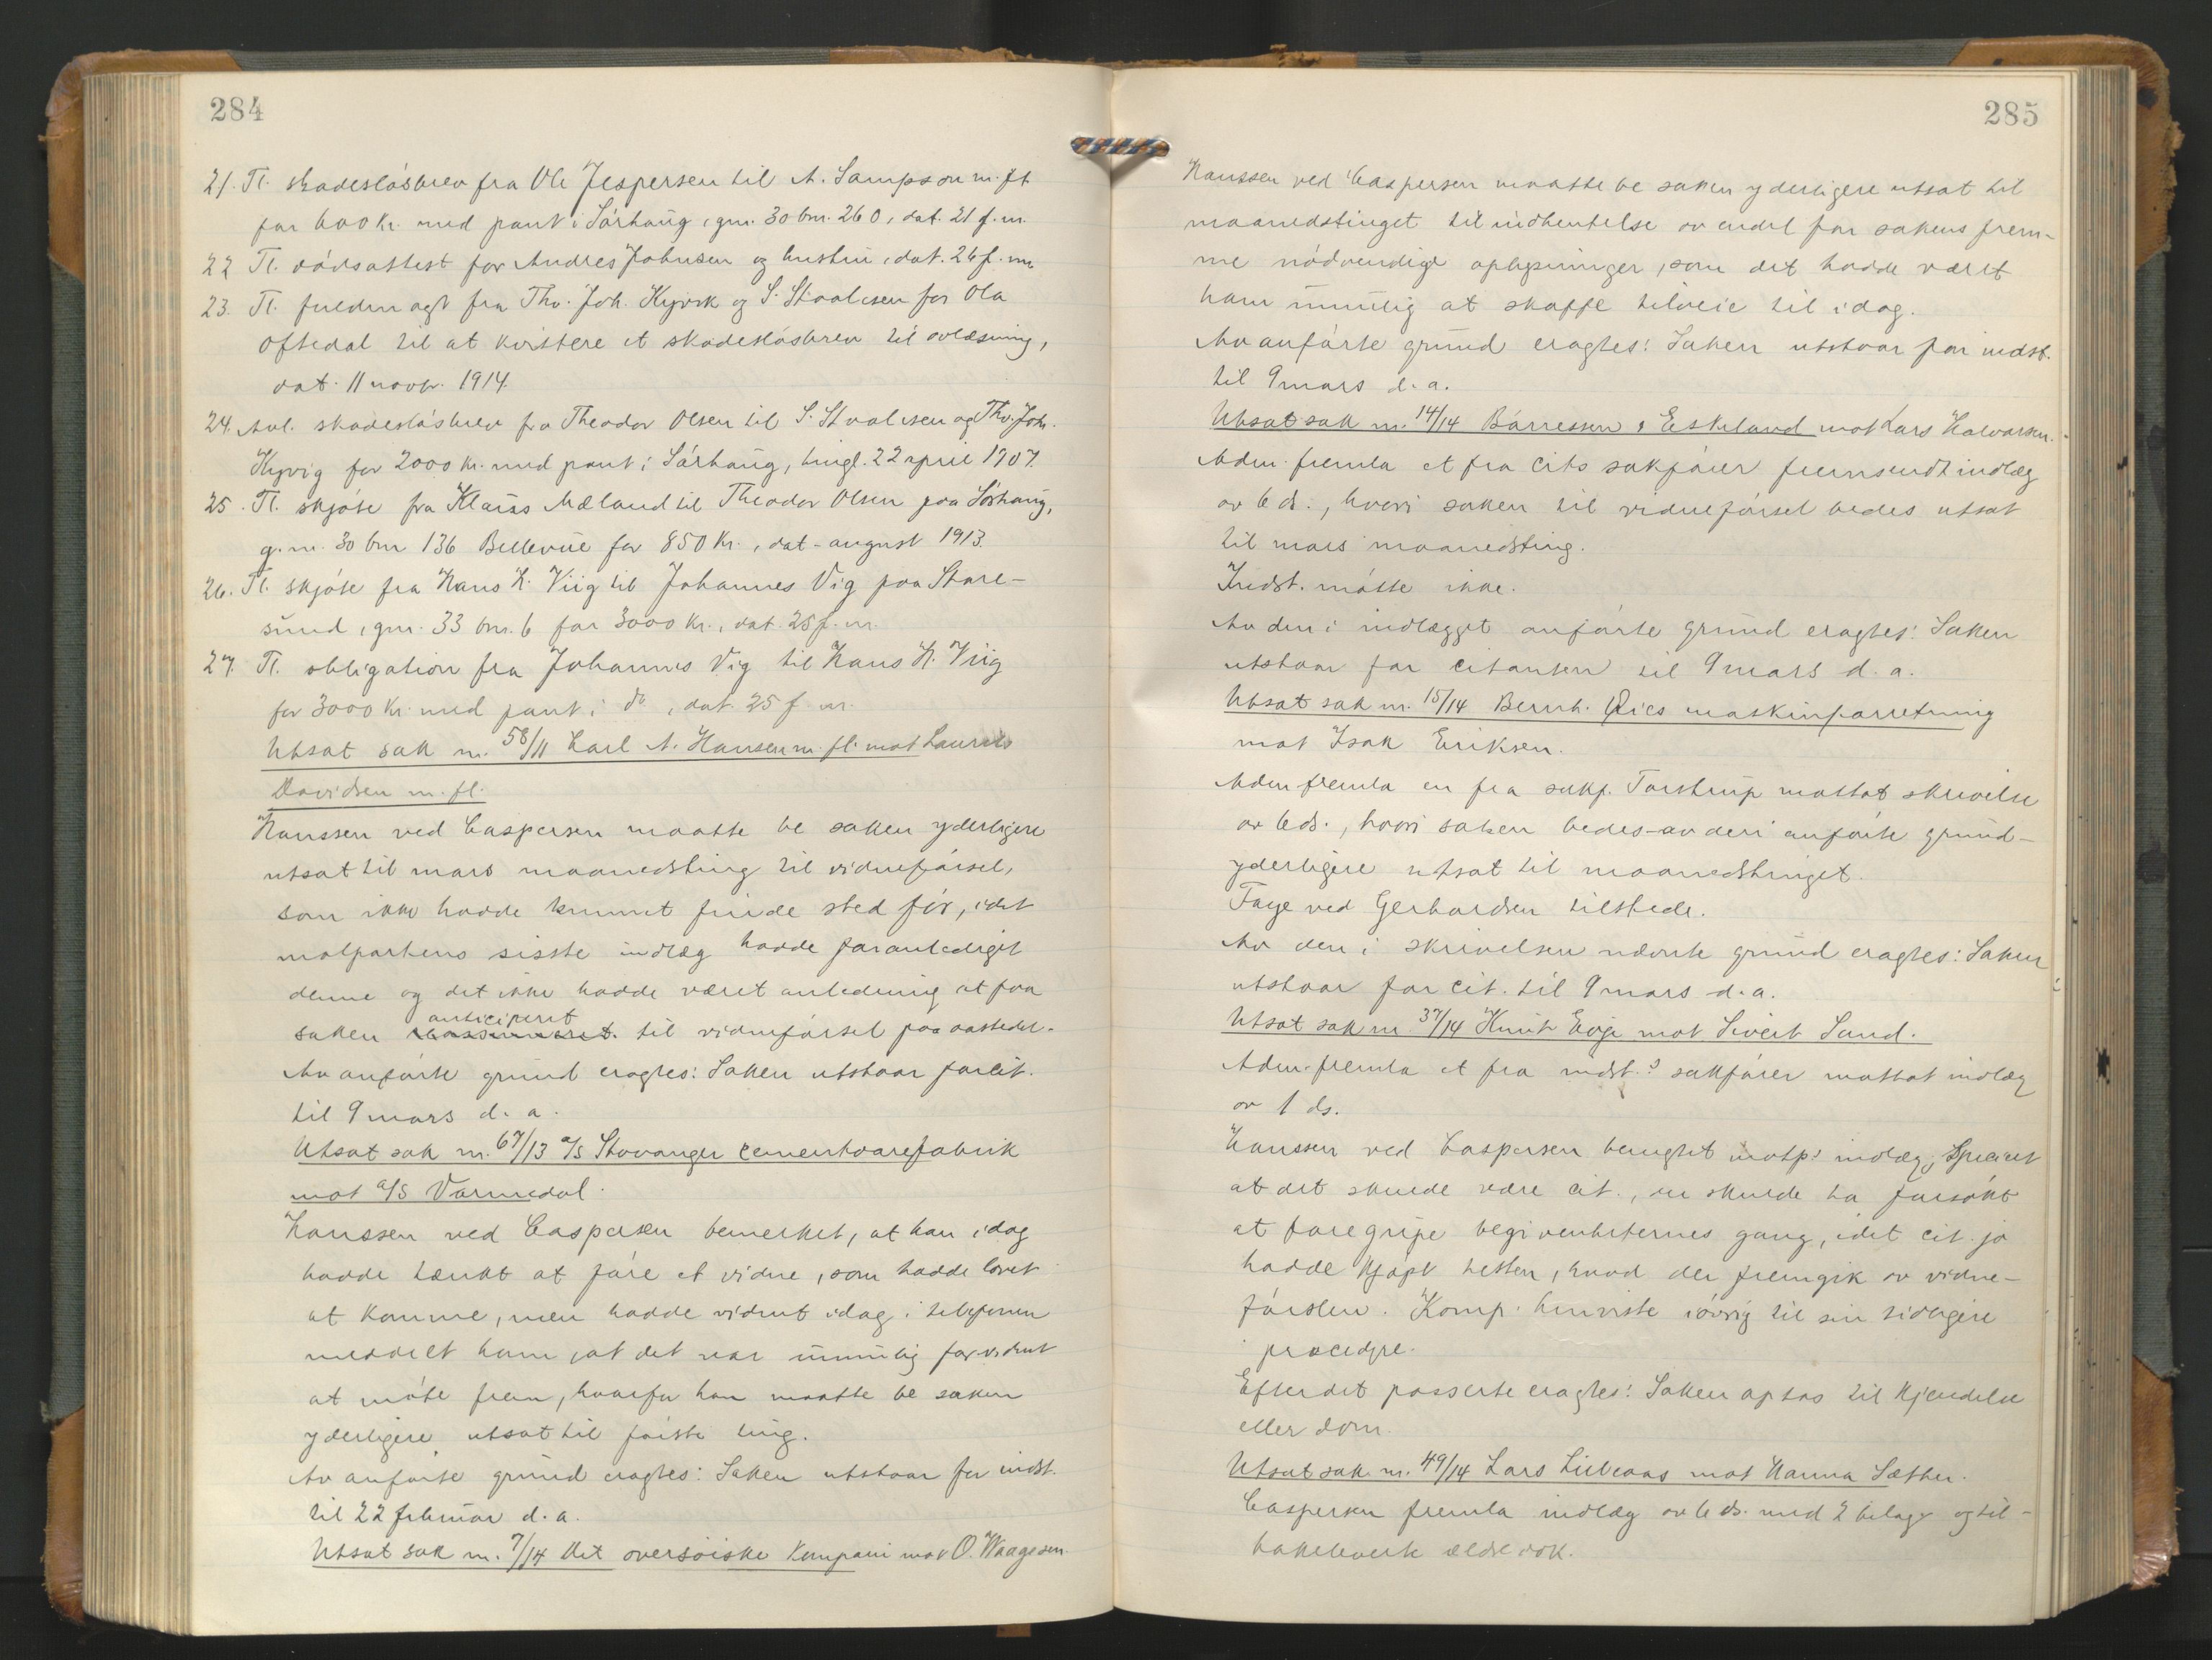 284
21. Tl. skadesløsbrev fra Ole Jespersen til A. Sampson m. fl
for 600 kr. med pant i Sørhaug, gnr. 30 bnr. 260, dat. 21 f. m.
22 Tl. dødsattest for Andres Johnsen og hustru, dat. 26 f. m.
23. Tl. fuldmagt fra Thv. Joh. Kyvik og S. Staalesen for Ola
Oftedal til at kvittere et skadesløsbrev til avlæsning,
dat. 11 novbr. 1914.
24. Avl. skadesløsbrev fra Theodor Olsen til S. Staalesen og Thv. Joh.
Kyvig for 2000 kr. med pant i Sørhaug, tingl. 22 april 1907.
25. Tl. skjøte fra Klaus Mæland til Theodor Olsen paa Sørhaug,
g. nr. 30 bnr 136 Bellevue for 850 kr., dat - august 1913.
26. Tl. skjøte fra Hans H. Viig til Johannes Vig paa Store-
sund, gnr. 33 bnr. 6 for 3000 kr., dat. 25 f. m.
27. Tl. obligation fra Johannes Vig til Hans H. Viig
for 3000 kr. med pant i do, dat. 25 f. m.
Utsat sak nr. 58/11 Carl A. Hansen m. fl. mot Laurits
Davidsen m. fl.
Hanssen ved Caspersen maatte be saken yderligere
utsat til mars maanedsting til vidneførsel,
som ikke hadde kunnet finde sted før, idet
motpartens sisste indlæg hadde foranlediget
denne og det ikke hadde været anledning at faa
anticiperet
saken til vidneførsel paa aastedet.
Av anførte grund eragtes: Saken utstaar for cit.
til 9 mars d. a.
Utsat sak nr. 67/13 a/s Stavanger cementvarefabrik
mot a/s Varmedal.
Hanssen ved Caspersen bemerket, at han idag
hadde tænkt at føre et vidne, som hadde lovet
at komme, men hadde vidnet idag i telefonen
meddelt ham, at det var umulig for vidnet
at møte frem, hvorfor han maatte be saken
yderligere utsat til første ting.
Av anførte grund eragtes: Saken utstaar for indst.
til 22 februar d. a.
Utsat sak nr. 7/14 Det oversøiske Kompani mot O. Waagesen.
285
Hanssen ved Caspersen maatte be saken yderligere utsat til
maanedstinget til indhentelse av endel for sakens frem-
me nødvendige oplysninger, som det hadde været
ham umulig at skaffe tilveie til idag.
Av anførte grund eragtes: Saken utstaar for indst.
til 9 mars d. a.
Utsat sak nr. 14/14 Børressen & Eskeland mot Lars Halvorsen.
Adm. fremla et fra cits sakfører fremsendt indlæg
av 6 ds., hvori saken til vidneførsel bedes utsat
til mars maanedsting.
Indst. møtte ikke.
Av den i indlægget anførte grund eragtes: Saken
utstaar for citanten til 9 mars d. a.
Utsat sak nr. 15/14 Bernh. Qies maskinforretning
mot Isak Eriksen.
Adm fremla en fra sakf. Torstrup mottat skrivelse
av 6 ds., hvori saken bedes - av deri anførte grund -
yderligere utsat til maanedstinget.
Faye ved Gerhardsen tilstede.
Av den i skrivelsen nævnte grund eragtes: Saken
utstaar for cit. til 9 mars d. a.
Utsat sak nr. 37/14 Knut Evje mot Sivert Sund.
Adm. fremla et fra indst.s sakfører mottat indlæg
av 1 ds.
Hanssen ved Caspersen benegtet motp.s indlæg, specielt
at det skulde være cit., der skulde ha forsøkt
at foregripe begivenheternes gang, idet cit. jo
hadde kjøpt hesten, hvad der fremgik av vidne-
førslen. Komp. henviste iøvrig til sin tidligere
procedyre.
Efter det passerte eragtes: Saken optas til kjendelse
eller dom.
Utsat sak nr. 49/14 Lars Lilleaas mot Hanna Sæther.
Caspersen fremla indlæg av 6 ds. med 2 bilag og til-
bakeleverte ældre dok.